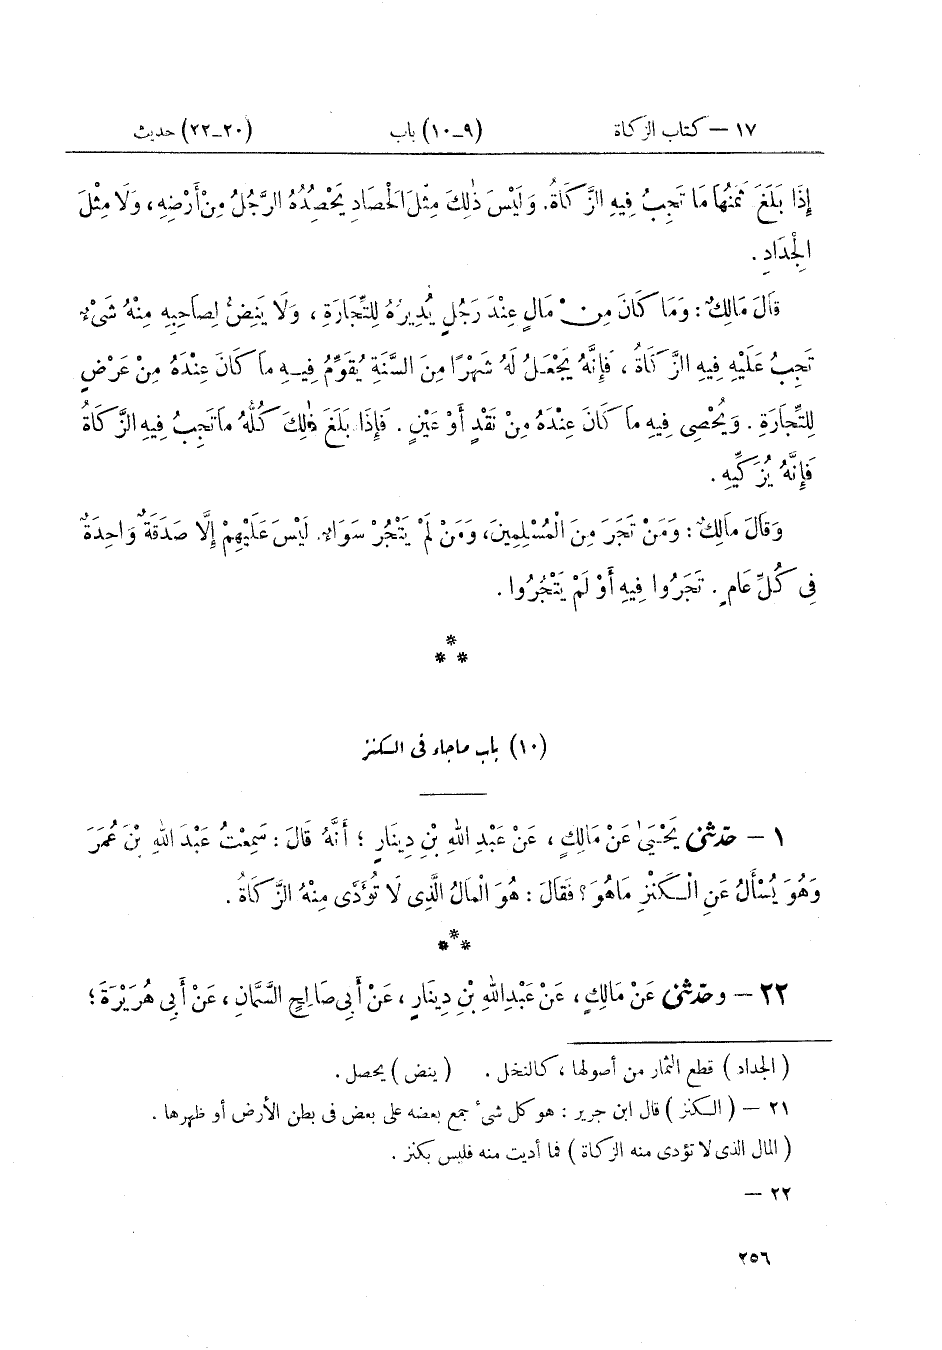 ١٧ — كتاب الزكاة (٩–١٠) باب (٢٠–٢٢) حديث
إِذَا بَلَغَ ثَمَنُهَا مَا تَجِبُ فِيهِ الزَّكَاةُ. وَلَيْسَ ذٰلِكَ مِثْلَ الْحَصَادِ يَحْصُدُهُ الرَّجُلُ مِنْ أَرْضِهِ، وَلَا مِثْلَ
الْجِدَادِ.
قَالَ مَالِكٌ: وَمَا كَانَ مِنْ مَالٍ عِنْدَ رَجُلٍ يُدِيرُهُ لِلتِّجَارَةِ، وَلَا يَنِضُّ لِصَاحِبِهِ مِنْهُ شَىْءٌ
تَجِبُ عَلَيْهِ فِيهِ الزَّكَاةُ، فَإِنَّهُ يَجْعَلُ لَهُ شَهْرًا مِنَ السَّنَةِ يُقَوِّمُ فِيهِ مَا كَانَ عِنْدَهُ مِنْ عَرْضٍ
لِلتِّجَارَةِ. وَيُحْصِى فِيهِ مَا كَانَ عِنْدَهُ مِنْ نَقْدٍ أَوْ عَيْنٍ. فَإِذَا بَلَغَ ذٰلِكَ كُلُّهُ مَا تَجِبُ فِيهِ الزَّكَاةُ
فَإِنَّهُ يُزَكِّيهِ.
وَقَالَ مَالِكٌ: وَمَنْ تَجَرَ مِنَ الْمُسْلِمِينَ، وَمَنْ لَمْ يَتْجُرْ سَوَاءٌ. لَيْسَ عَلَيْهِمْ إِلَّا صَدَقَةٌ وَاحِدَةٌ
فِى كُلِّ عَامٍ. تَجَرُوا فِيهِ أَوْ لَمْ يَتْجُرُوا.
*
* *
(١٠) باب ماجاء فى الكنز
١ — حَدَّثَنِى يَحْيَىٰ عَنْ مَالِكٍ، عَنْ عَبْدِ اللهِ بْنِ دِينَارٍ؛ أَنَّهُ قَالَ: سَمِعْتُ عَبْدَ اللهِ بْنَ عُمَرَ
وَهُوَ يُسْأَلُ عَنِ الْكَنْزِ مَاهُوَ؟ فَقَالَ: هُوَ الْمَالُ الَّذِى لَا تُؤَدَّى مِنْهُ الزَّكَاةُ.
*
* *
٢٢ — وحَدَّثَنِى عَنْ مَالِكٍ، عَنْ عَبْدِ اللهِ بْنِ دِينَارٍ، عَنْ أَبِى صَالِحٍ السَّمَّانِ، عَنْ أَبِى هُرَيْرَةَ؛
(الجداد) قطع الثمار من أصولها، كالنخل. (ينض) يحصل.
٢١ — (الكنز) قال ابن جرير: هو كل شىء جمع بعضه على بعض فى بطن الأرض أو ظهرها.
(المال الذى لا تؤدى منه الزكاة) فما أديت منه فليس بكنز.
٢٢ —
٢٥٦